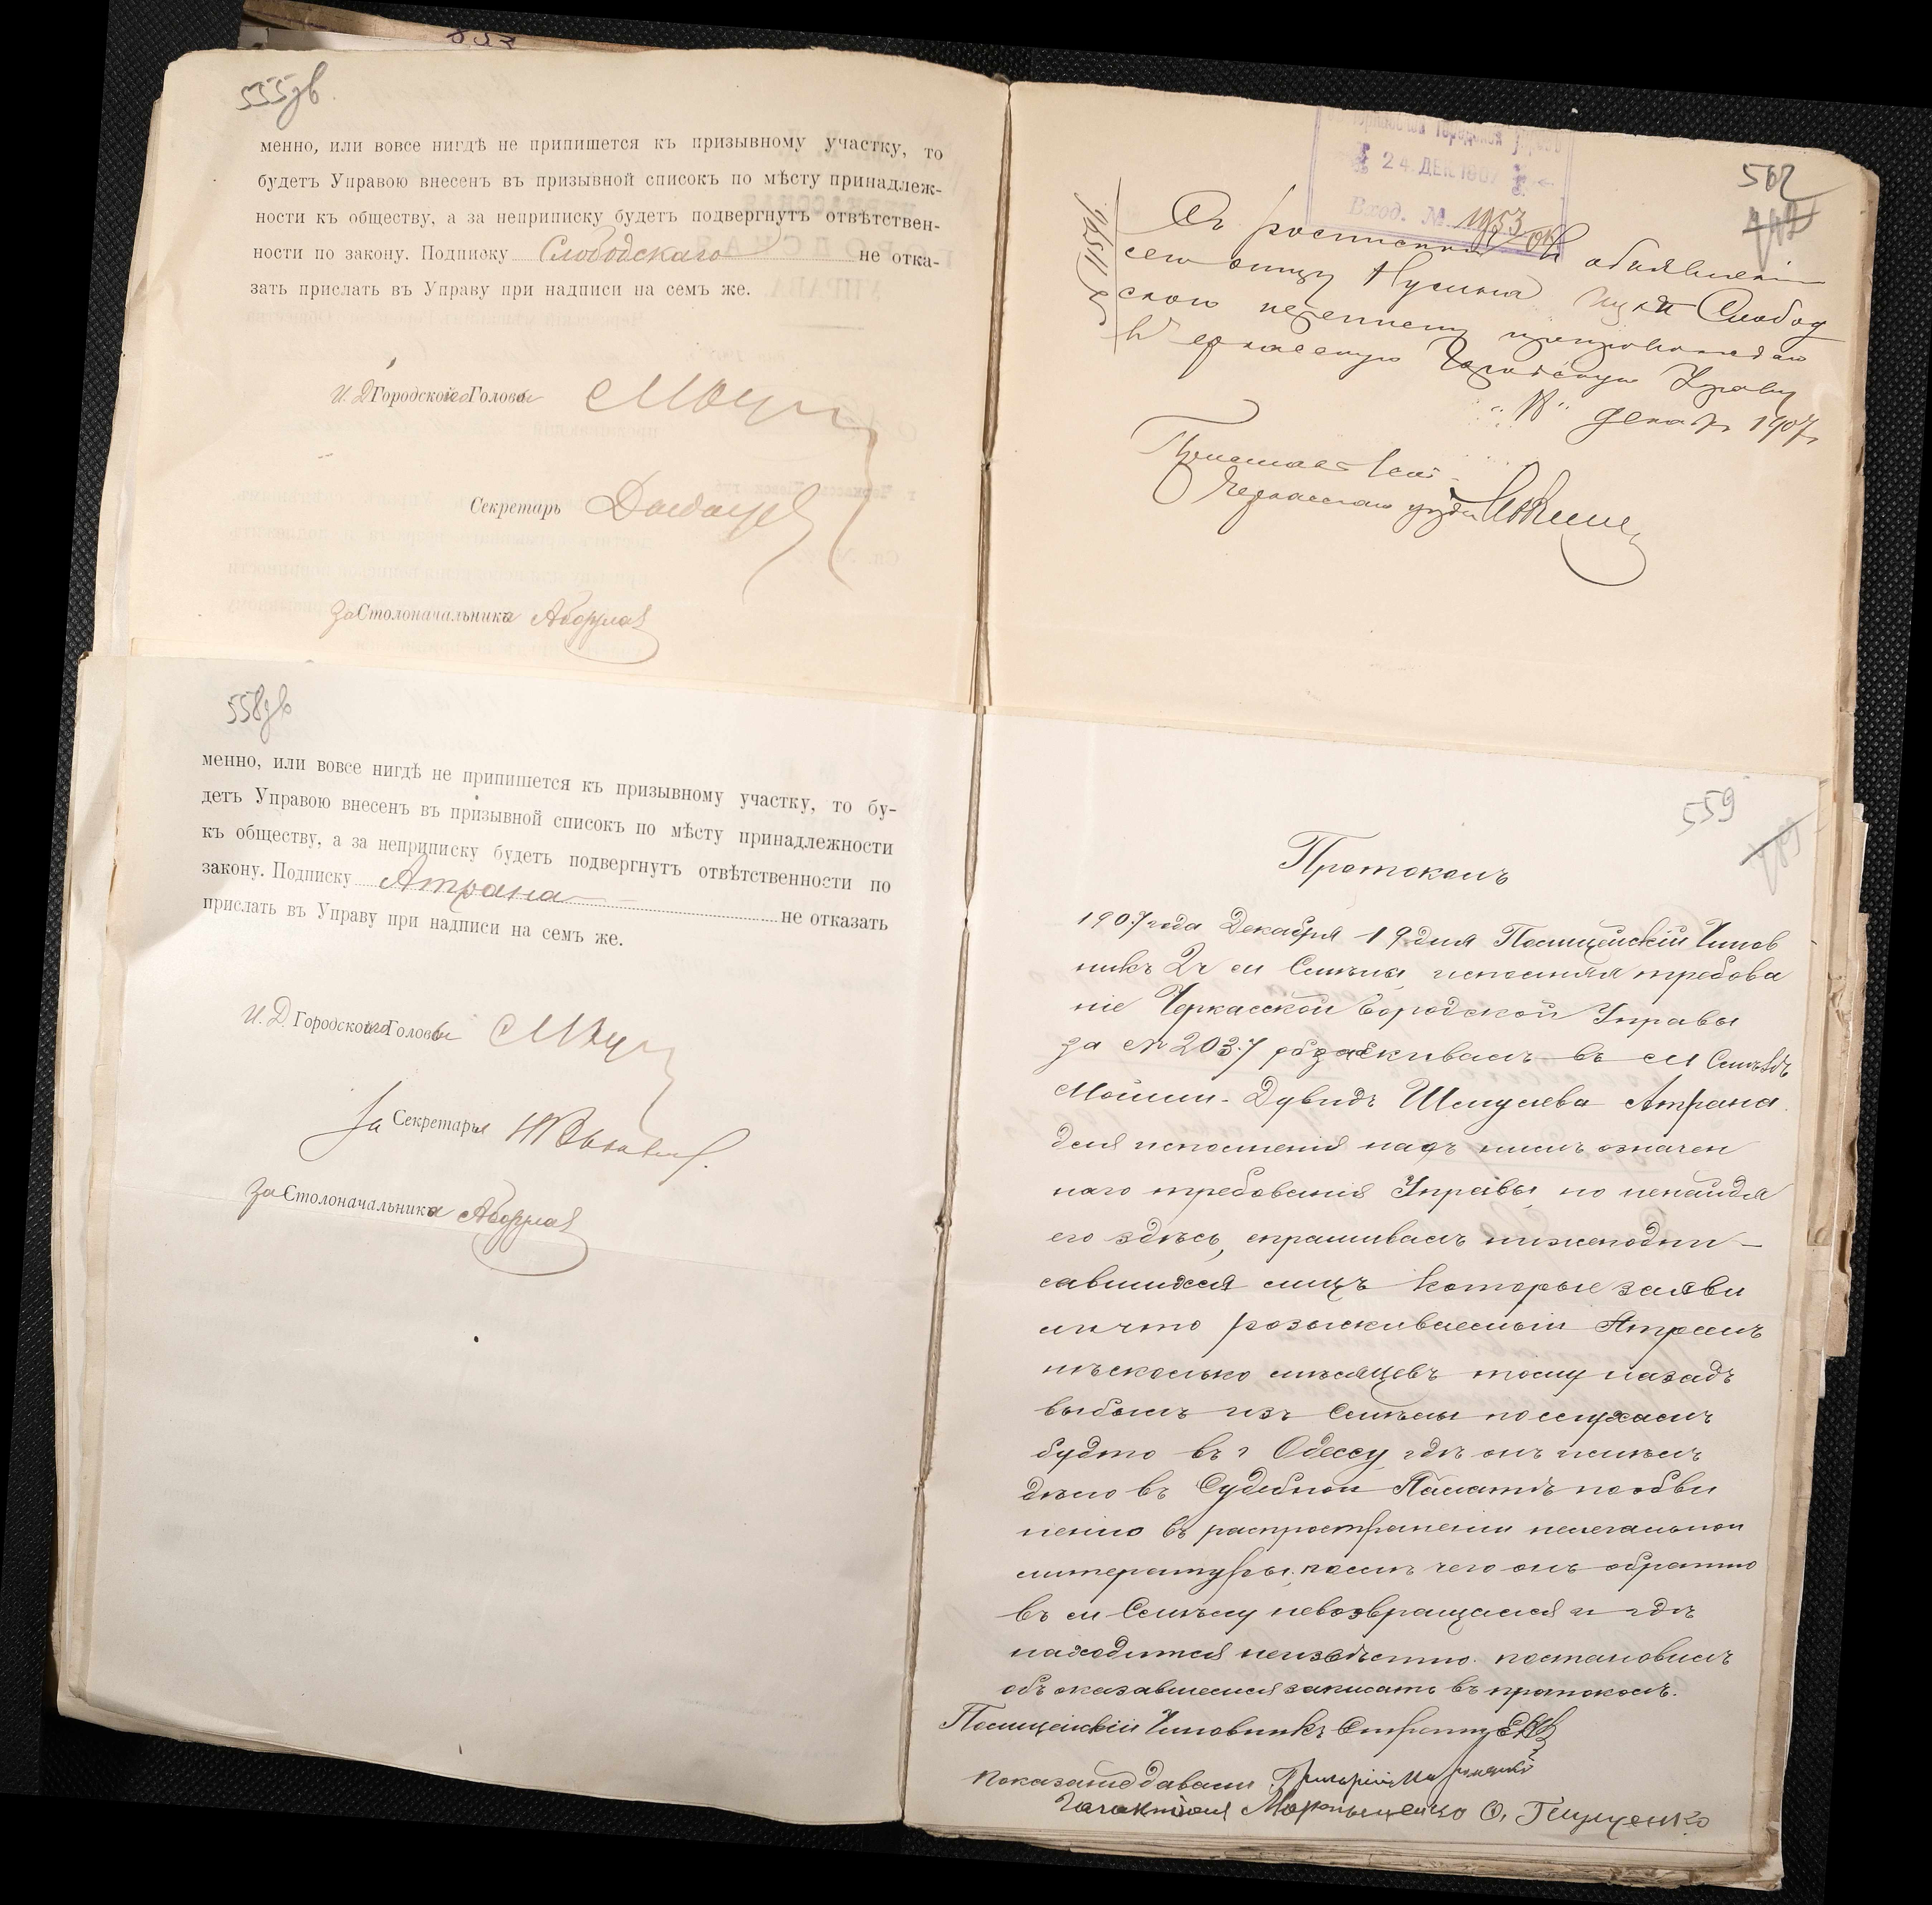 555зв
менно, или вовсе нигдѣ не припишется къ призывному участку, то
будетъ Управою внесенъ въ призывной списокъ по мѣсту принадлеж-
ности къ обществу, а за неприписку будетъ подвергнутъ отвѣтствен-
ности по закону. Подписку Слободскаго не отка-
зать прислать въ Управу при надписи на семъ же.
И. Д. Городского Головы
Секретарь
За Столоначальника
24 ДЕК 1907
Вход. № 1953
562
Съ роспискою объявленія
сего отцу Нусина Слобод
скаго препровождаю
въ Черкасскую Городскую Управу
"18" декаб 1907 г
Черкасскаго уѣзда
558зв
менно, или вовсе нигдѣ не припишется къ призывному участку, то бу-
детъ Управою внесенъ въ призывной списокъ по мѣсту принадлежности
къ обществу, а за неприписку будетъ подвергнутъ отвѣтственности по
закону. Подписку Атрана не отказать
прислать въ Управу при надписи на семъ же.
И. Д. Городского Головы
За Секретаря
За Столоначальника
559
Протоколъ
1907 года Декабря 19 дня Полицейскій Чинов
никъ 2 ч м Смѣлы исполняя требова
ніе Черкасской Городской Управы
за № 2037 розыскивалъ въ м Смѣлѣ
Мойши-Дувидъ Шмулева Атрана
для исполненія надъ нимъ означен
наго требованія Управы, но ненайдя
его здѣсь, спрашивалъ нижеподпи-
савшихся лицъ которые заяви
ли что розыскиваемый Атранъ
нѣсколько мѣсяцевъ тому назадъ
выбылъ изъ Смѣлы по слухамъ
будто въ г Одессу гдѣ онъ имѣлъ
дѣло въ Судебной Палатѣ по обви
ненію въ распространеніи нелегальной
литературы, послѣ чего онъ обратно
въ м Смѣлу невозвращался и гдѣ
находится неизвѣстно. постановилъ
объ оказавшемся записать въ протоколъ.
Полицейскій Чиновникъ
Показаніе давали Григорій
О. Глущенко